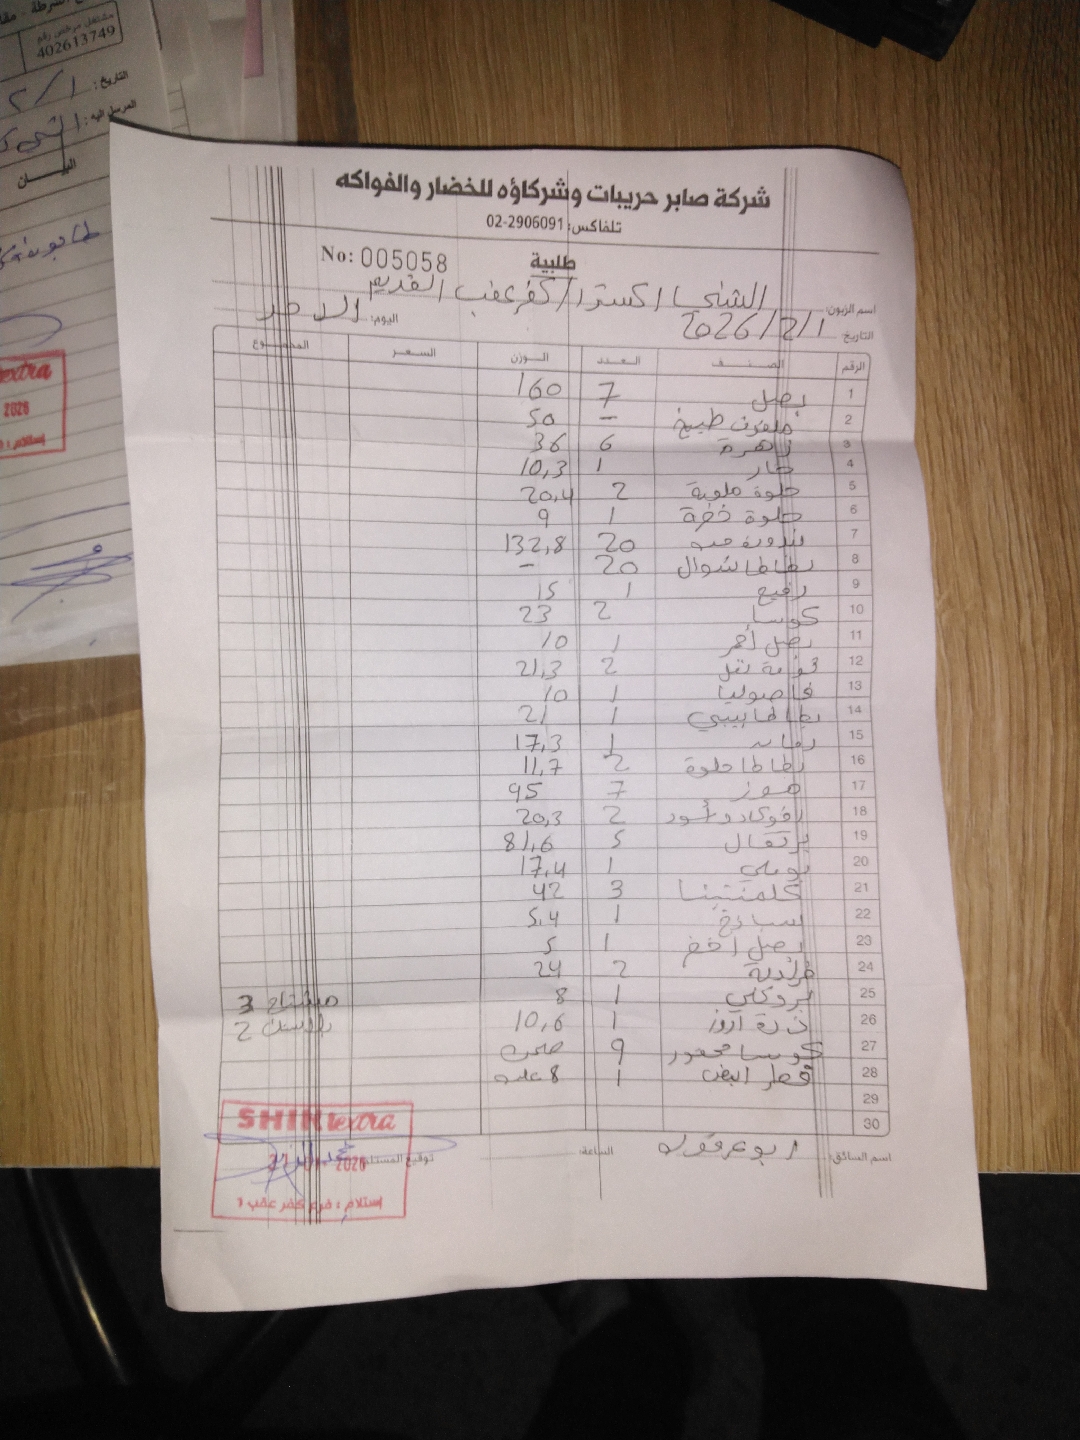 مشتغل مرخص رقم
402613749
التاريخ:
المرسل اليه:
البيان
extra
2026
شركة صابر حريبات وشركاؤه للخضار والفواكه
تلفاكس: 02-2906091
طلبية
No: 005058
اسم الزبون: الشني اكسترا / كفر عقب القديم
التاريخ: 2026/2/1 اليوم: الاحد
الرقم الصنف العدد الوزن السعر المجموع
1 بصل 7 160
2 ملفوف طبيخ - 50
3 زهرة 6 36
4 حار 1 10,3
5 حلوة ملونة 2 20,4
6 حلوة خضرة 1 9
7 بندورة حبه 20 132,8
8 بطاطا شوال 20 -
9 رفيع 1 15
10 كوسا 2 23
11 بصل أحمر 1 10
12 2 21,3
13 فاصوليا 1 10
14 بطاطا بيبي 1 21
15 1 17,3
16 بطاطا حلوة 2 11,7
17 موز 7 95
18 افوكادو أسود 2 20,3
19 برتقال 5 81,6
20 بوملي 1 17,4
21 كلمنتينا 3 42
22 سبانخ 1 5,4
23 بصل اخضر 1 5
24 2 24
25 بروكلي 1 8 مشتاح 3
26 1 10,6 2
27 كوسا محفور 9 صحن
28 فطر ابيض 1 8 علبه
29
30
اسم السائق: الساعة: توقيع المستلم:
SHINI extra
2026
إستلام : فرع كفر عقب